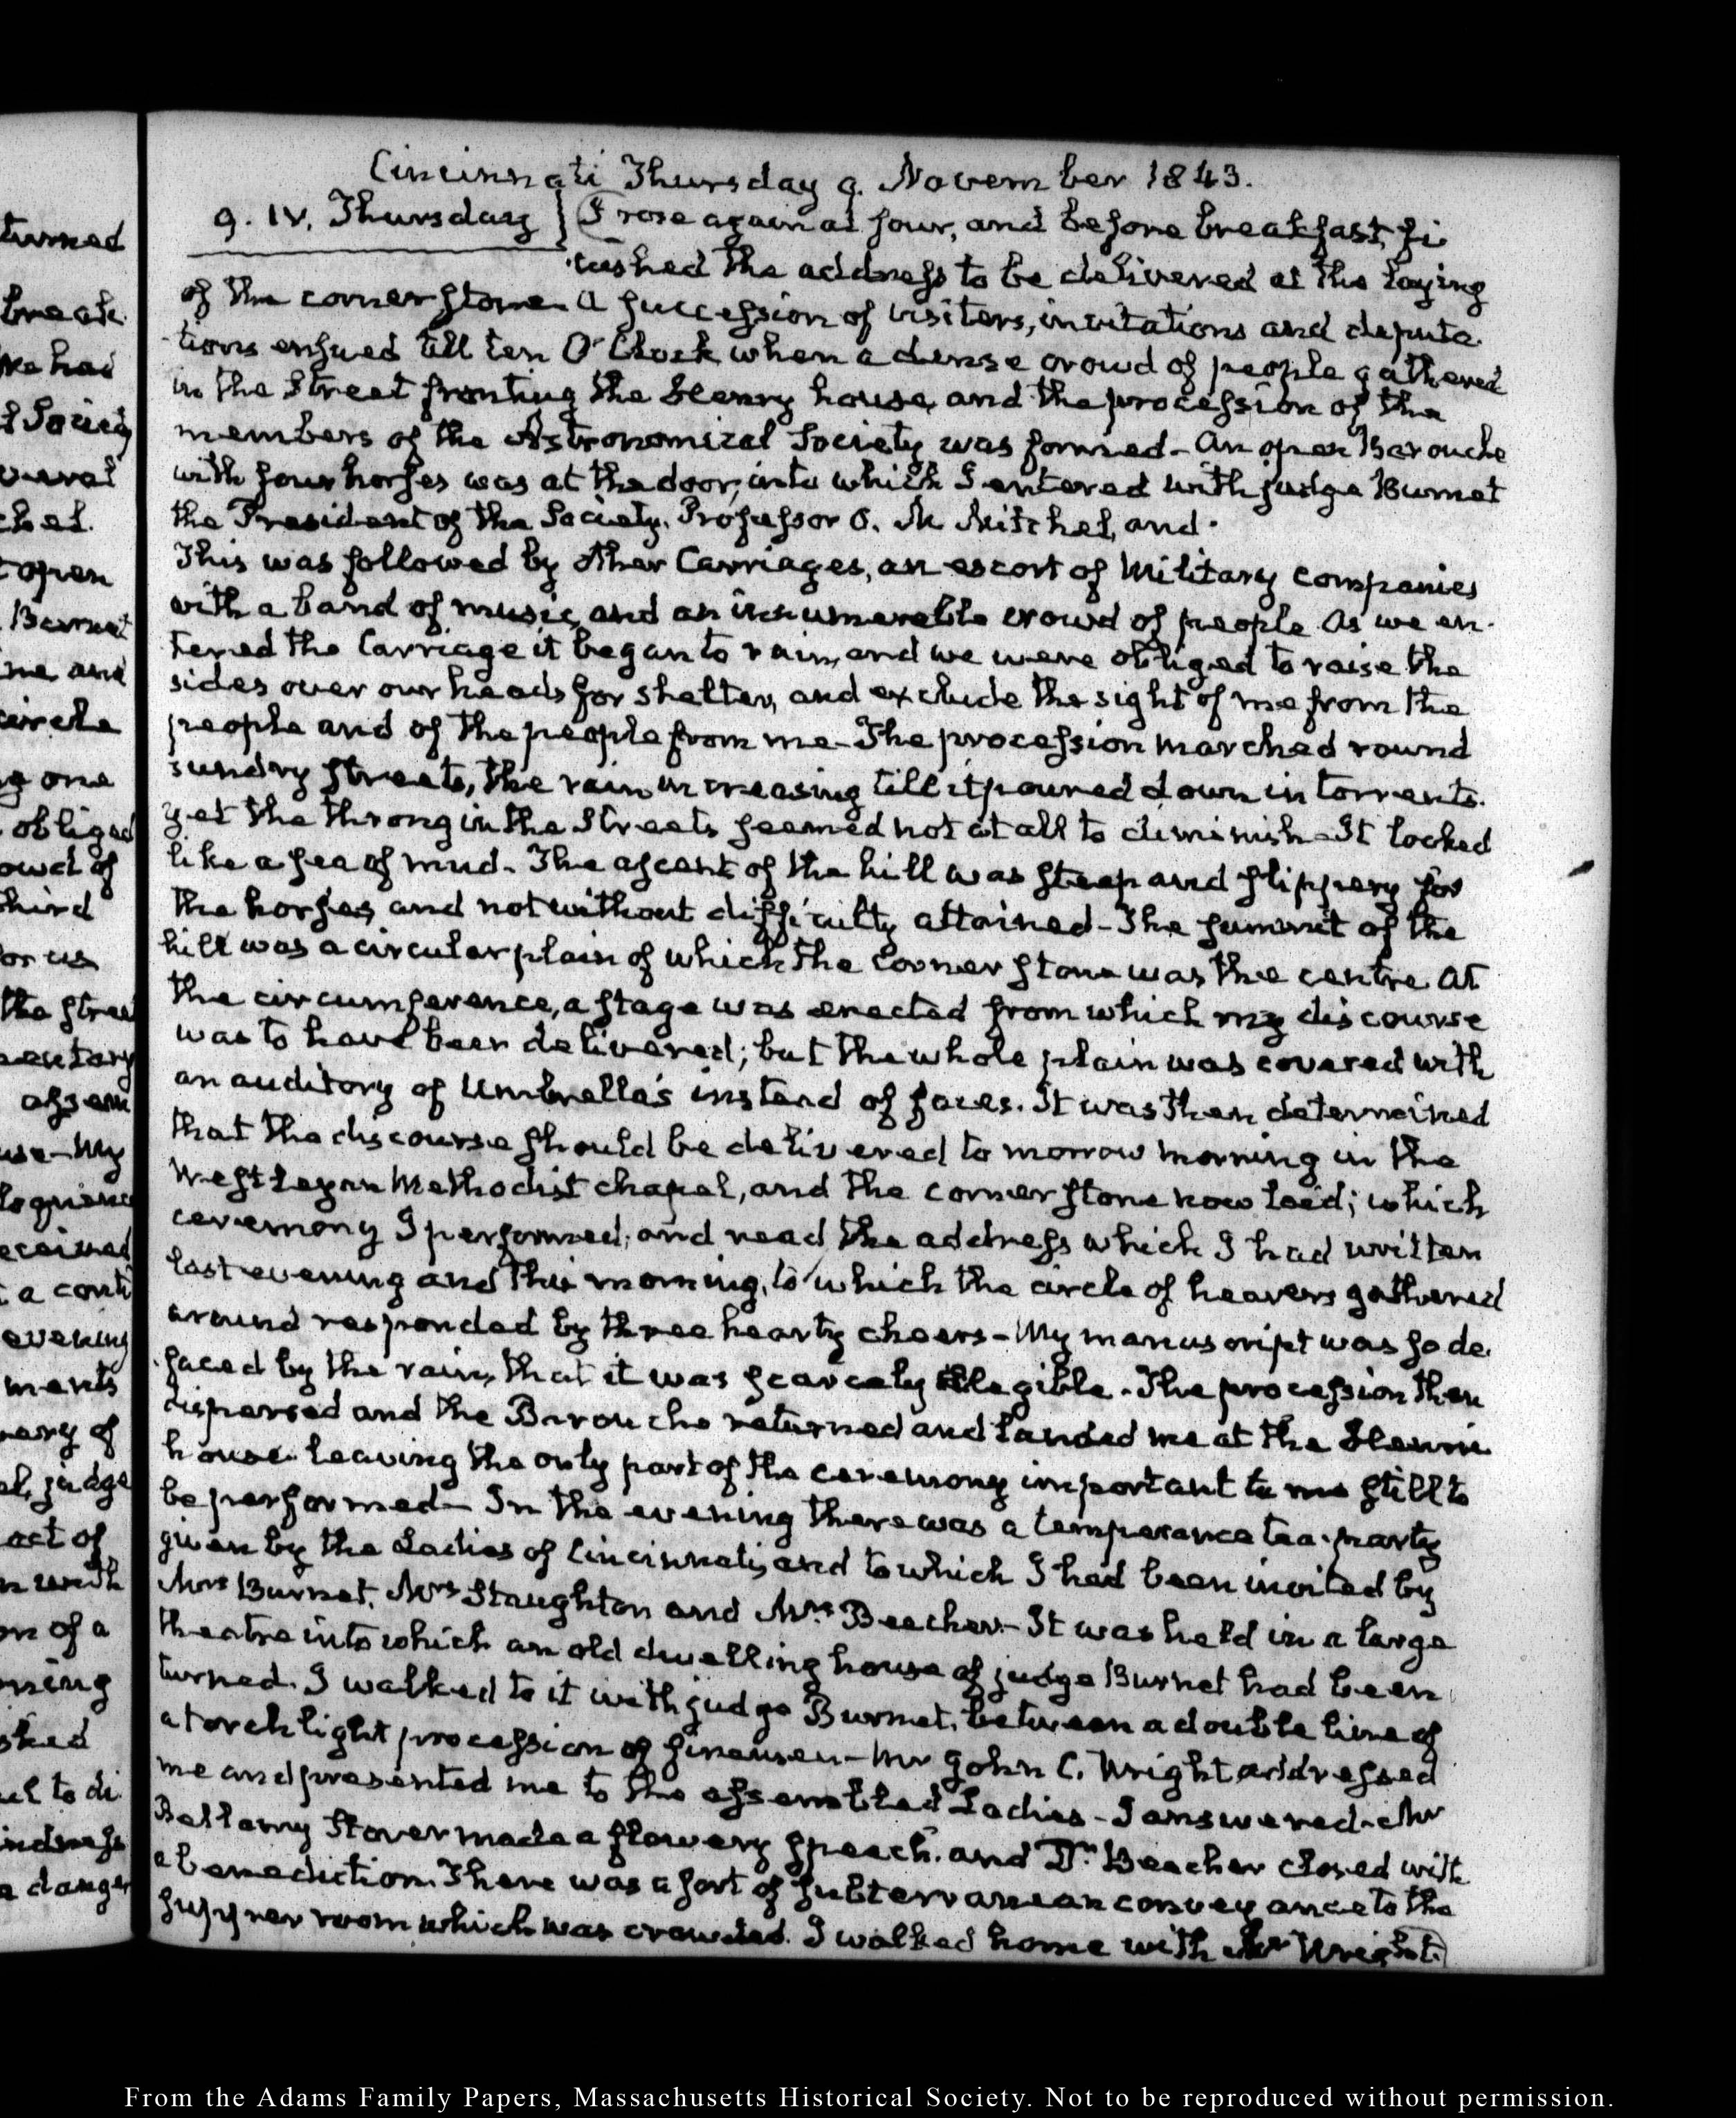 Cincinnati Thursday 9. November 1843.
9. IV. Thursday I rose again at four, and before breakfast, fi
nished the address to be delivered at the laying
of the corner stone. A succession of visiters, invitations and deputa
tions ensued till ten O'Clock when a dense crowd of people gathered
in the Street fronting the Henry house, and the procession of the
members of the Astronomical Society was formed - An open Barouche
with four horses was at the door, into which I entered with judge Burnet
the President of the Society, Professor O. M Mitchel, and
This was followed by other Carriages, an escort of Military companies
with a band of music, and an innumerable crowd of people. As we en-
tered the Carriage it began to rain, and we were obliged to raise the
sides over our heads for shelter, and exclude the sight of me from the
people and of the people from me - The procession marched round
sundry Streets, the rain increasing till it poured down in torrents.
yet the throng in the Streets seemed not at all to diminish - It looked
like a sea of mud. The ascent of the hill was steep and slippery for
the horses, and not without difficulty attained - The summit of the
hill was a circular plain of which the corner stone was the centre. At
the circumference, a stage was erected from which my discourse
was to have been delivered; but the whole plain was covered with
an auditory of Umbrella's instead of faces. It was then determined
that the discourse should be delivered to morrow morning in the
Westleyan Methodist chapel, and the corner stone now laid; which
ceremony I performed; and read the address which I had written
last evening and this morning, to which the circle of hearers gathered
around responded by three hearty cheers - My manuscript was so de
faced by the rain, that it was scarcely legible. The procession then
dispersed and the Barouche returned and landed me at the Henri
house. leaving the only part of the ceremony important to me still to
be performed - In the evening there was a temperance tea-party
given by the Ladies of Cincinnati, and to which I had been invited by
Mrs Burnet, Mrs Staughton and Mrs Beecher - It was held in a large
theatre into which an old dwelling house of judge Burnet had been
turned. I walked to it with judge Burnet, between a double line of
a torch light procession of firemen - Mr John C. Wright addressed
me and presented me to the assembled Ladies - I answered - Mr
Bellamy Storer made a flowery speech, and Dr. Beecher closed with
a benediction. There was a sort of subterranean conveyance to the
supper room which was crowded. I walked home with Mr Wright.
turned
had
Society
open
Burnet
me and
circle
one
obliged
owd of
third
or us
the stree
assem
My
a conti
evening
ments
of
judge
act of
with
on of a
to di
danger
From the Adams Family Papers, Massachusetts Historical Society. Not to be reproduced without permission.